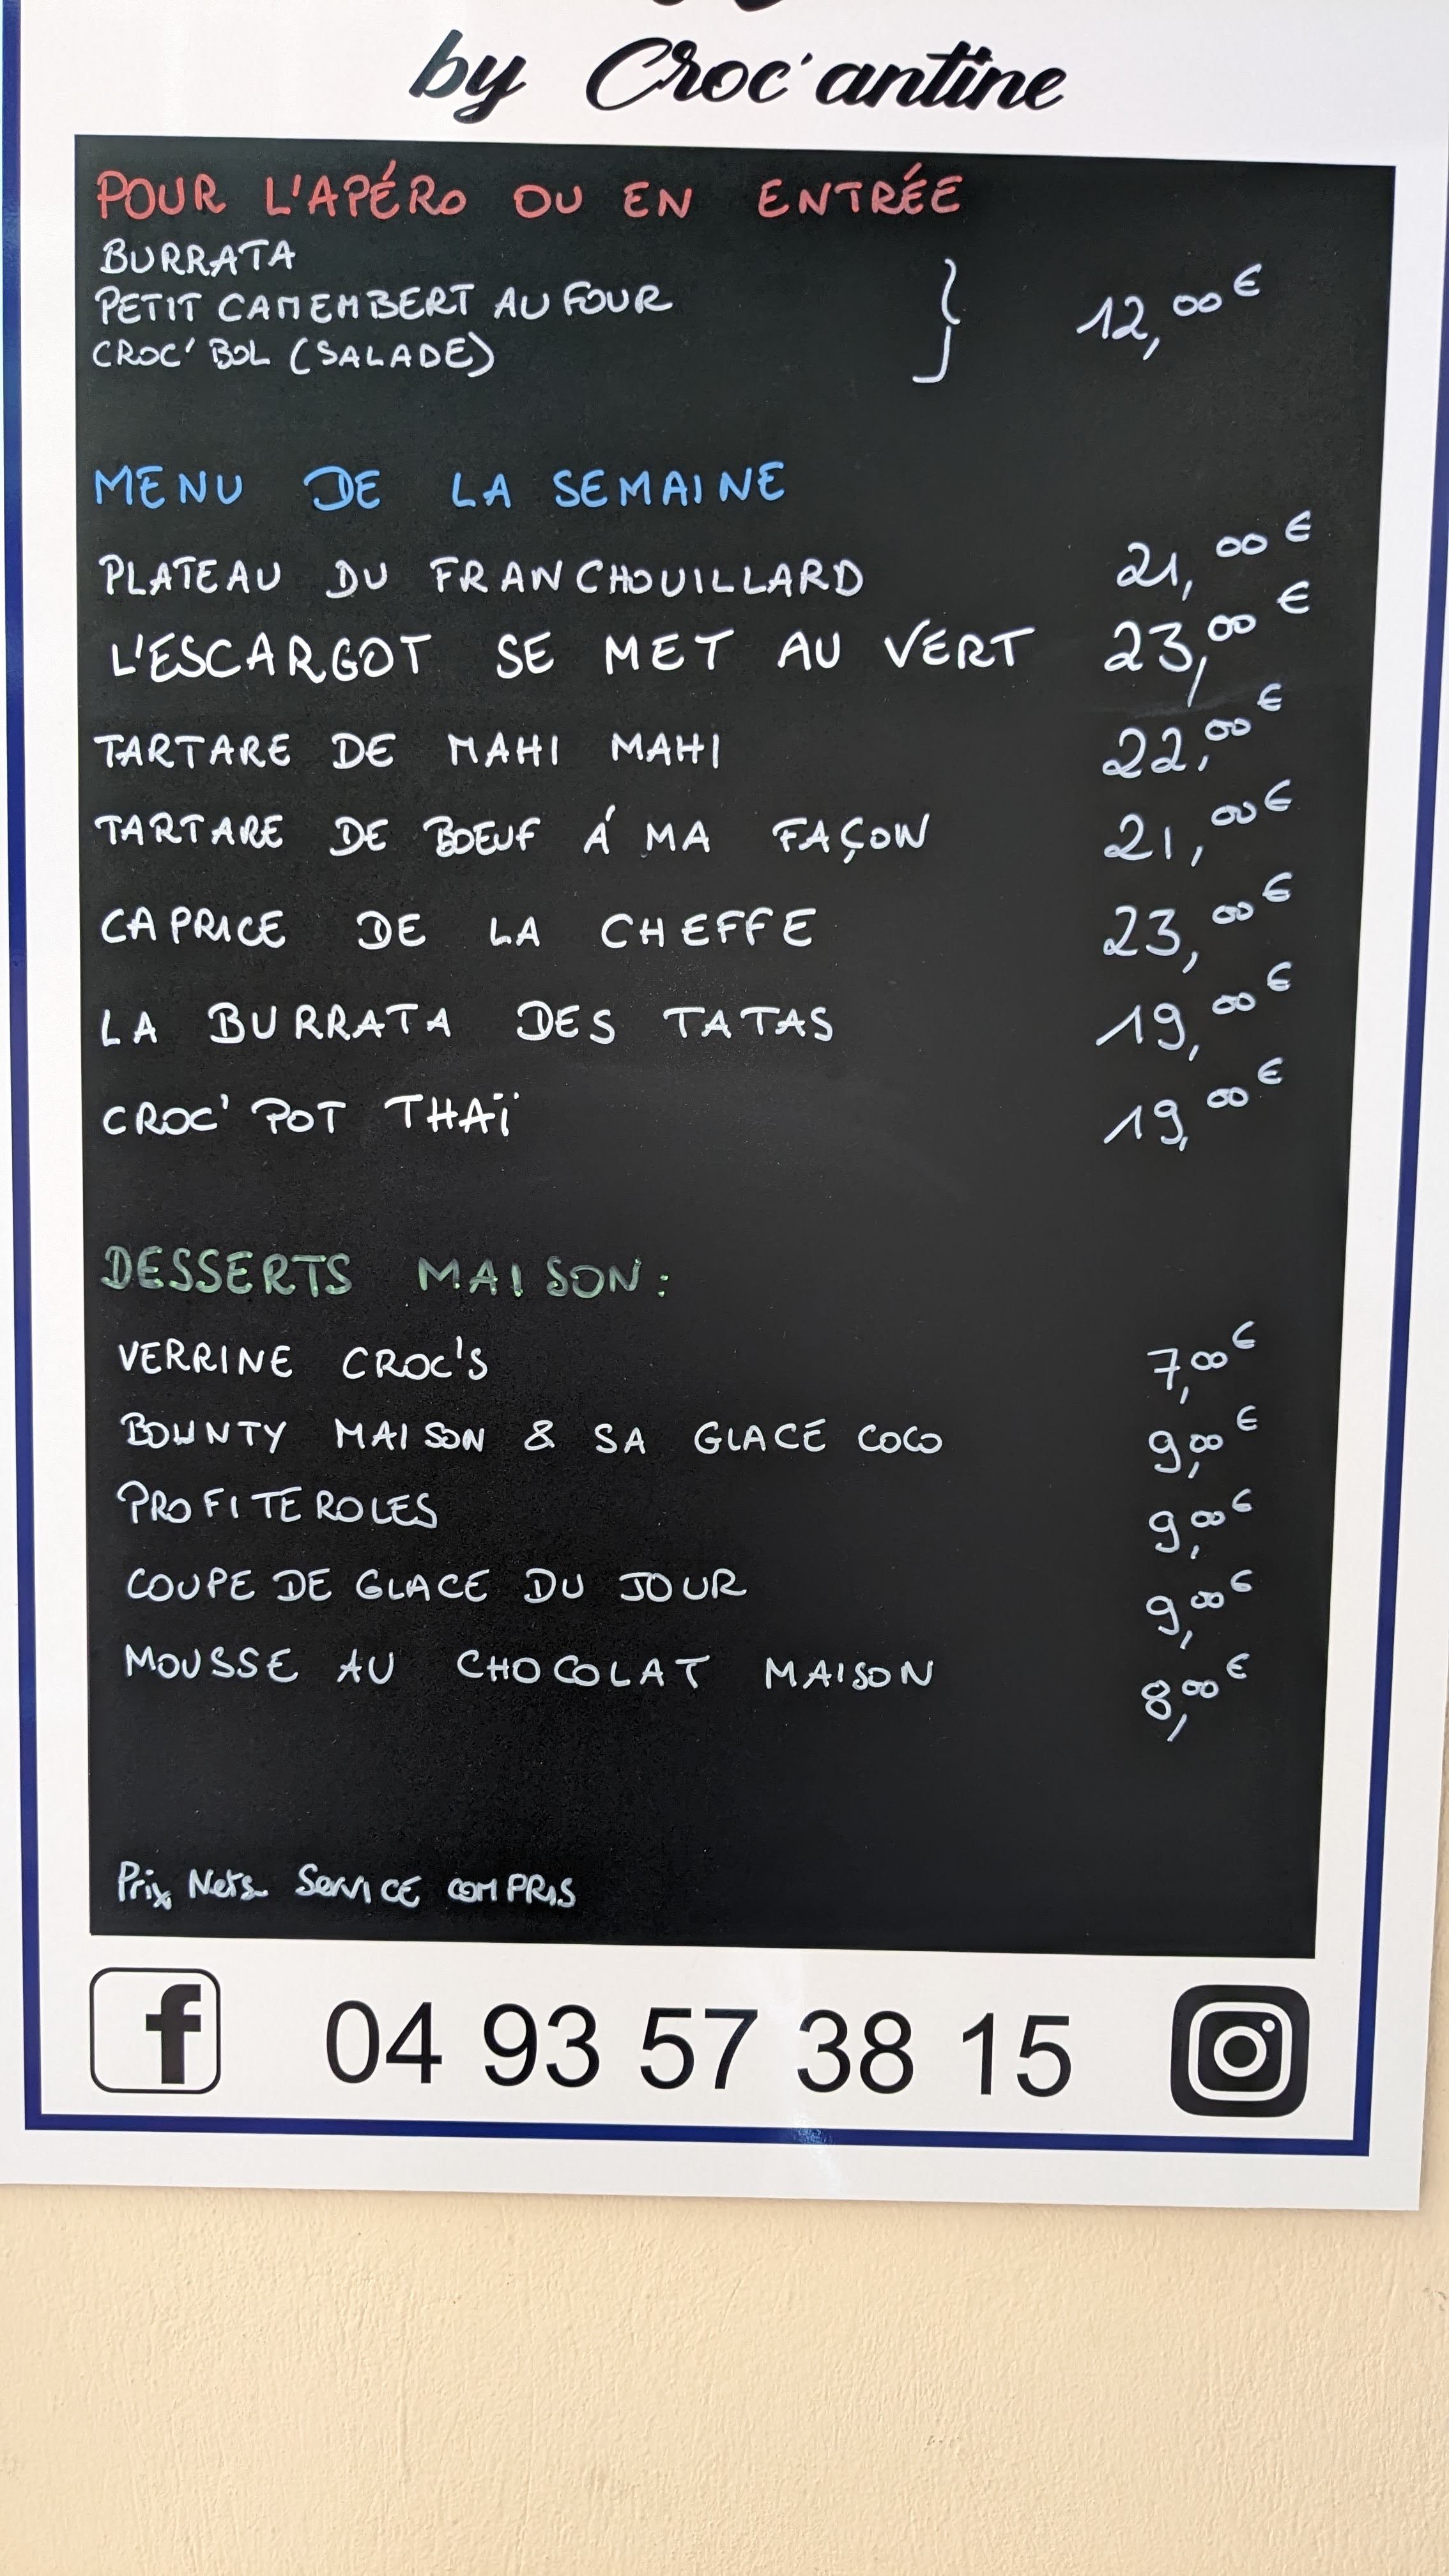 by Croc'antine
POUR L'APÉRO OU EN ENTRÉE
BURRATA
PETIT CAMEMBERT AU FOUR
CROC' BOL (SALADE)
12,00€
MENU DE LA SEMAINE
PLATEAU DU FRANCHOUILLARD 21,00€
L'ESCARGOT SE MET AU VERT 23,00€
TARTARE DE MAHI MAHI 22,00€
TARTARE DE BOEUF Á MA FAÇON 21,00€
CAPRICE DE LA CHEFFE 23,00€
LA BURRATA DES TATAS 19,00€
CROC' POT THAÏ 19,00€
DESSERTS MAISON:
VERRINE CROC'S 7,00€
BOUNTY MAISON & SA GLACE COCO 9,00€
PROFITEROLES 9,00€
COUPE DE GLACE DU JOUR 9,00€
MOUSSE AU CHOCOLAT MAISON 8,00€
Prix Nets Service COMPRIS
f 04 93 57 38 15